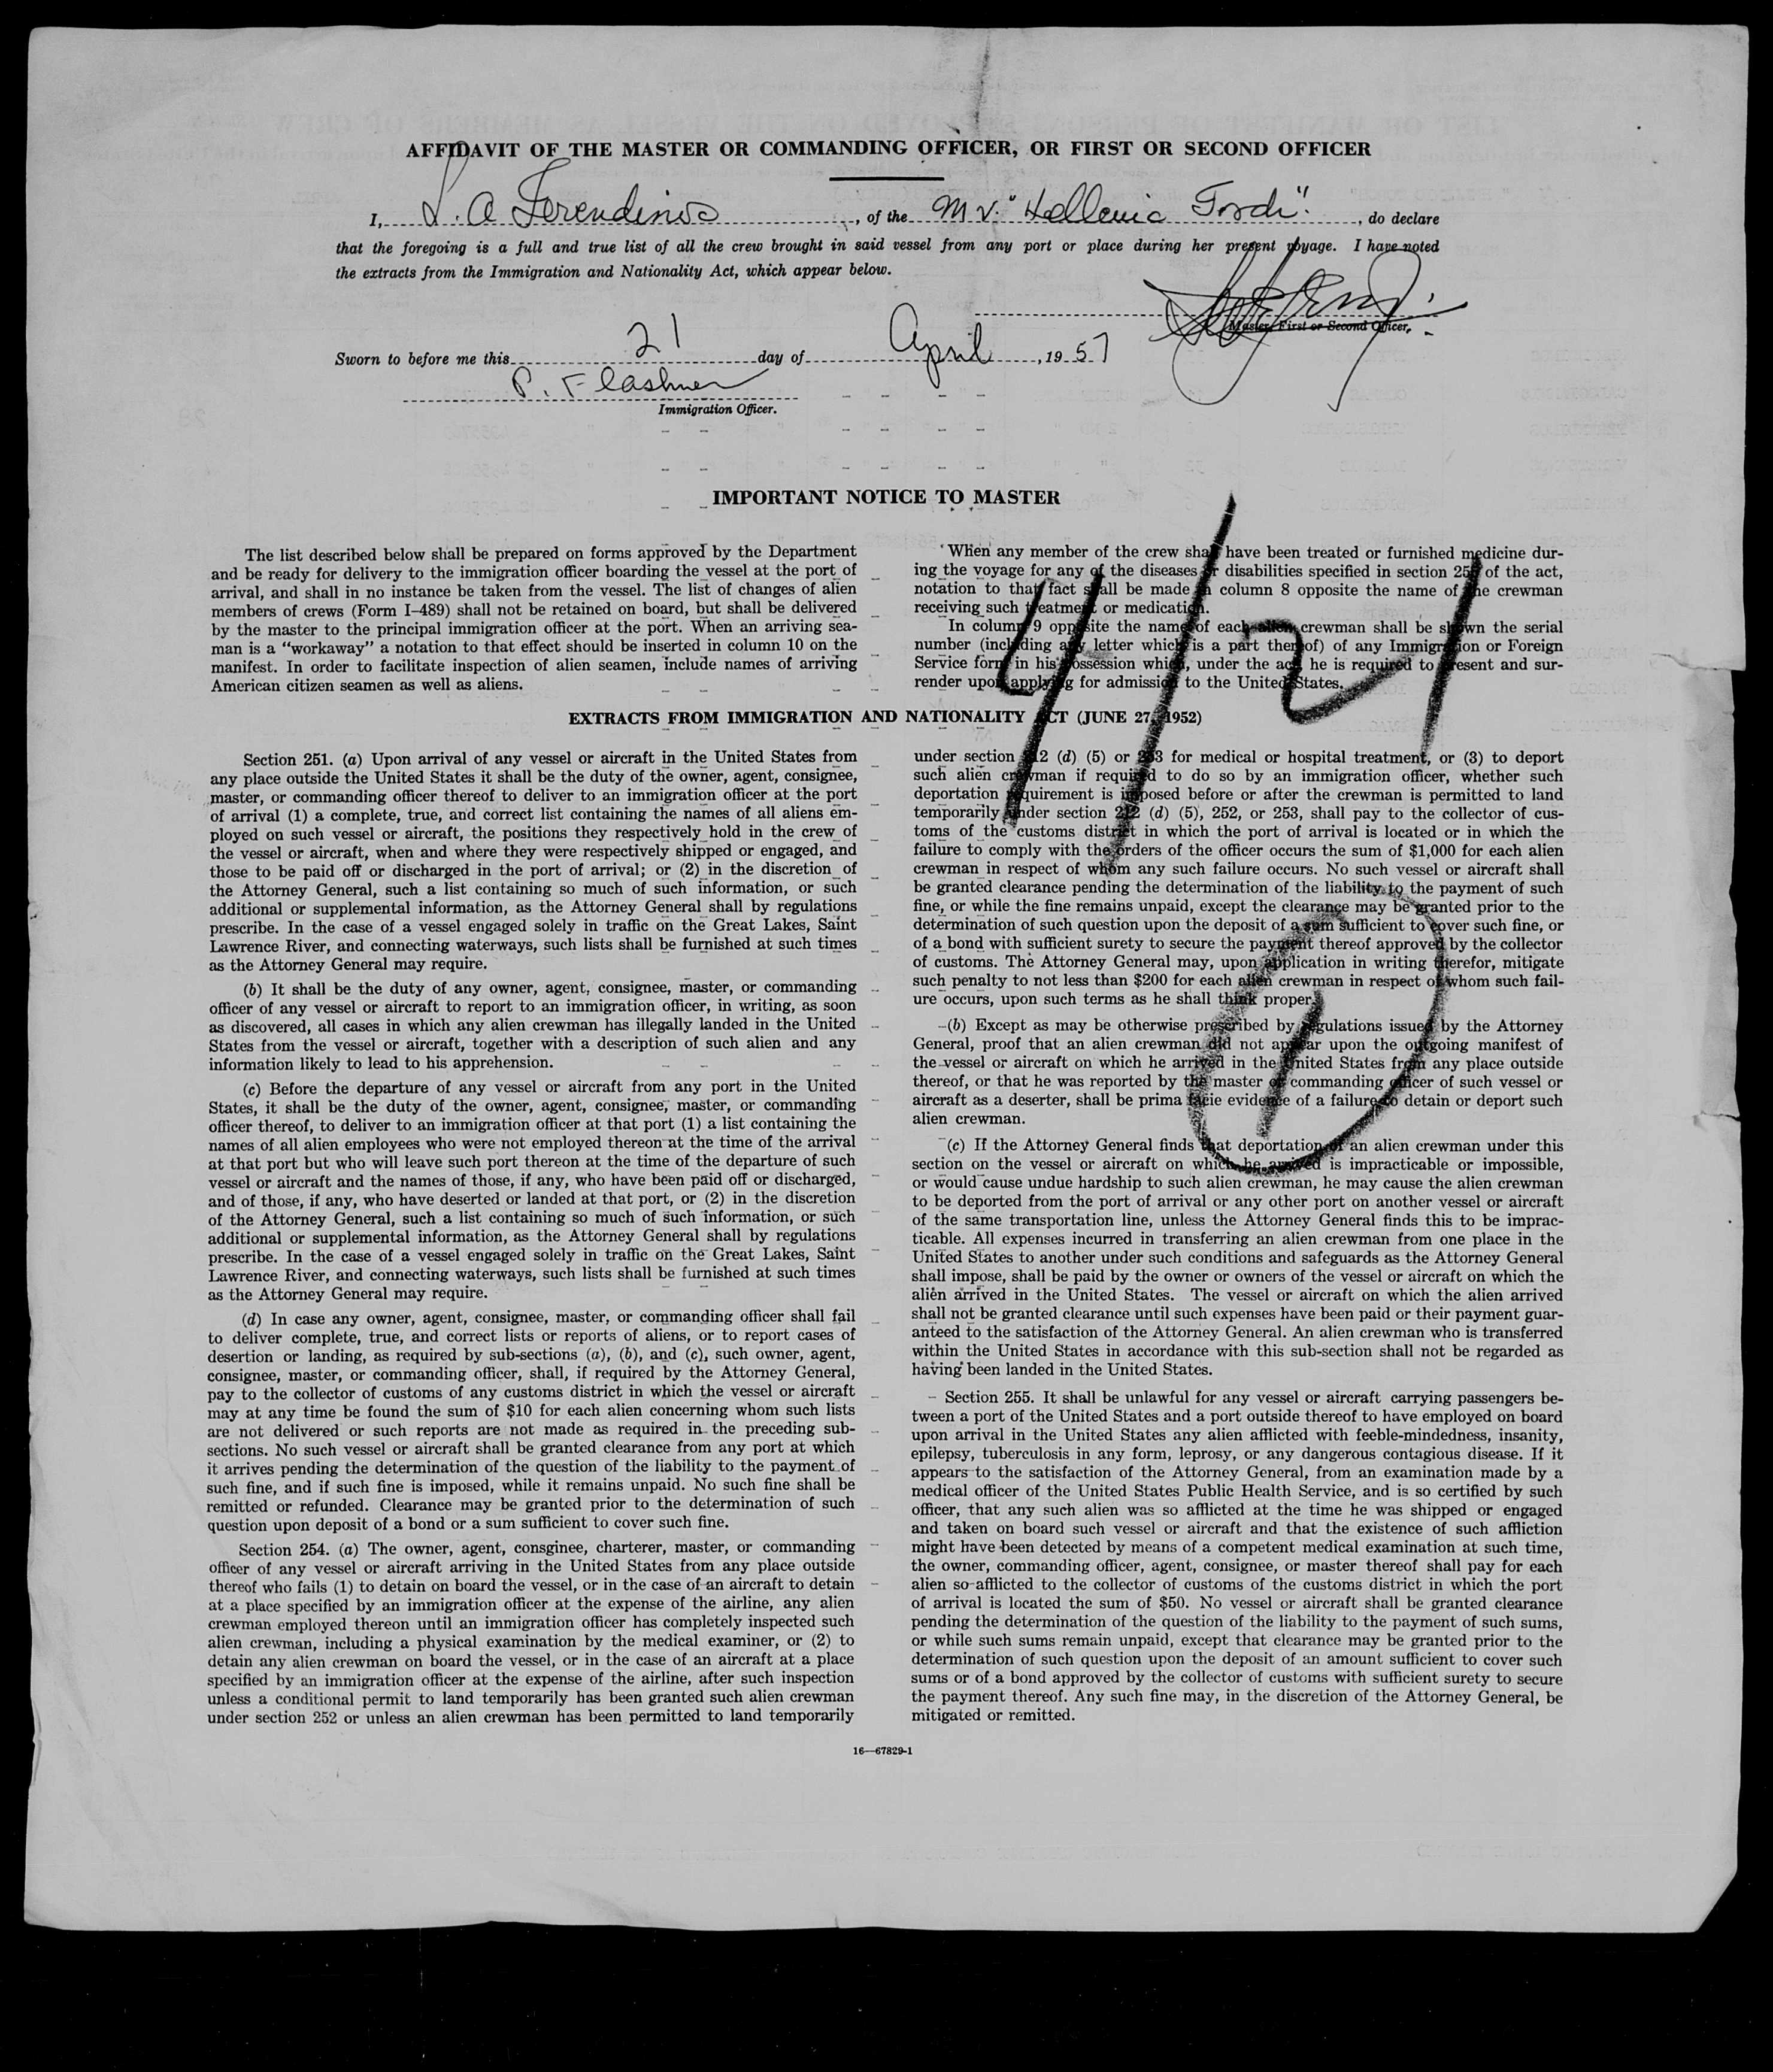 AFFIDAVIT OF THE MASTER OR COMMANDING OFFICER, OR FIRST OR SECOND OFFICER
I, L. A Ferendinos, of the M V. "Hellenic Torch", do declare
that the foregoing is a full and true list of all the crew brought in said vessel from any port or place during her present voyage. I have noted
the extracts from the Immigration and Nationality Act, which appear below.
Master, First or Second Officer.
Sworn to before me this 21 day of April, 1957
P. Flashner
Immigration Officer.
IMPORTANT NOTICE TO MASTER
The list described below shall be prepared on forms approved by the Department
and be ready for delivery to the immigration officer boarding the vessel at the port of
arrival, and shall in no instance be taken from the vessel. The list of changes of alien
members of crews (Form I–489) shall not be retained on board, but shall be delivered
by the master to the principal immigration officer at the port. When an arriving sea-
man is a "workaway" a notation to that effect should be inserted in column 10 on the
manifest. In order to facilitate inspection of alien seamen, include names of arriving
American citizen seamen as well as aliens.
When any member of the crew shall have been treated or furnished medicine dur-
ing the voyage for any of the diseases or disabilities specified in section 255 of the act,
notation to that fact shall be made in column 8 opposite the name of the crewman
receiving such treatment or medication.
In column 9 opposite the name of each alien crewman shall be shown the serial
number (including any letter which is a part thereof) of any Immigration or Foreign
Service form in his possession which, under the act, he is required to present and sur-
render upon applying for admission to the United States.
4/21
EXTRACTS FROM IMMIGRATION AND NATIONALITY ACT (JUNE 27, 1952)
Section 251. (a) Upon arrival of any vessel or aircraft in the United States from
any place outside the United States it shall be the duty of the owner, agent, consignee,
master, or commanding officer thereof to deliver to an immigration officer at the port
of arrival (1) a complete, true, and correct list containing the names of all aliens em-
ployed on such vessel or aircraft, the positions they respectively hold in the crew of
the vessel or aircraft, when and where they were respectively shipped or engaged, and
those to be paid off or discharged in the port of arrival; or (2) in the discretion of
the Attorney General, such a list containing so much of such information, or such
additional or supplemental information, as the Attorney General shall by regulations
prescribe. In the case of a vessel engaged solely in traffic on the Great Lakes, Saint
Lawrence River, and connecting waterways, such lists shall be furnished at such times
as the Attorney General may require.
(b) It shall be the duty of any owner, agent, consignee, master, or commanding
officer of any vessel or aircraft to report to an immigration officer, in writing, as soon
as discovered, all cases in which any alien crewman has illegally landed in the United
States from the vessel or aircraft, together with a description of such alien and any
information likely to lead to his apprehension.
(c) Before the departure of any vessel or aircraft from any port in the United
States, it shall be the duty of the owner, agent, consignee, master, or commanding
officer thereof, to deliver to an immigration officer at that port (1) a list containing the
names of all alien employees who were not employed thereon at the time of the arrival
at that port but who will leave such port thereon at the time of the departure of such
vessel or aircraft and the names of those, if any, who have been paid off or discharged,
and of those, if any, who have deserted or landed at that port, or (2) in the discretion
of the Attorney General, such a list containing so much of such information, or such
additional or supplemental information, as the Attorney General shall by regulations
prescribe. In the case of a vessel engaged solely in traffic on the Great Lakes, Saint
Lawrence River, and connecting waterways, such lists shall be furnished at such times
as the Attorney General may require.
(d) In case any owner, agent, consignee, master, or commanding officer shall fail
to deliver complete, true, and correct lists or reports of aliens, or to report cases of
desertion or landing, as required by sub-sections (a), (b), and (c), such owner, agent,
consignee, master, or commanding officer, shall, if required by the Attorney General,
pay to the collector of customs of any customs district in which the vessel or aircraft
may at any time be found the sum of $10 for each alien concerning whom such lists
are not delivered or such reports are not made as required in the preceding sub-
sections. No such vessel or aircraft shall be granted clearance from any port at which
it arrives pending the determination of the question of the liability to the payment of
such fine, and if such fine is imposed, while it remains unpaid. No such fine shall be
remitted or refunded. Clearance may be granted prior to the determination of such
question upon deposit of a bond or a sum sufficient to cover such fine.
Section 254. (a) The owner, agent, consginee, charterer, master, or commanding
officer of any vessel or aircraft arriving in the United States from any place outside
thereof who fails (1) to detain on board the vessel, or in the case of an aircraft to detain
at a place specified by an immigration officer at the expense of the airline, any alien
crewman employed thereon until an immigration officer has completely inspected such
alien crewman, including a physical examination by the medical examiner, or (2) to
detain any alien crewman on board the vessel, or in the case of an aircraft at a place
specified by an immigration officer at the expense of the airline, after such inspection
unless a conditional permit to land temporarily has been granted such alien crewman
under section 252 or unless an alien crewman has been permitted to land temporarily
under section 212 (d) (5) or 253 for medical or hospital treatment, or (3) to deport
such alien crewman if required to do so by an immigration officer, whether such
deportation requirement is imposed before or after the crewman is permitted to land
temporarily under section 212 (d) (5), 252, or 253, shall pay to the collector of cus-
toms of the customs district in which the port of arrival is located or in which the
failure to comply with the orders of the officer occurs the sum of $1,000 for each alien
crewman in respect of whom any such failure occurs. No such vessel or aircraft shall
be granted clearance pending the determination of the liability to the payment of such
fine, or while the fine remains unpaid, except the clearance may be granted prior to the
determination of such question upon the deposit of a sum sufficient to cover such fine, or
of a bond with sufficient surety to secure the payment thereof approved by the collector
of customs. The Attorney General may, upon application in writing therefor, mitigate
such penalty to not less than $200 for each alien crewman in respect of whom such fail-
ure occurs, upon such terms as he shall think proper.
1
(b) Except as may be otherwise prescribed by regulations issued by the Attorney
General, proof that an alien crewman did not appear upon the outgoing manifest of
the vessel or aircraft on which he arrived in the United States from any place outside
thereof, or that he was reported by the master or commanding officer of such vessel or
aircraft as a deserter, shall be prima facie evidence of a failure to detain or deport such
alien crewman.
(c) If the Attorney General finds that deportation of an alien crewman under this
section on the vessel or aircraft on which he arrived is impracticable or impossible,
or would cause undue hardship to such alien crewman, he may cause the alien crewman
to be deported from the port of arrival or any other port on another vessel or aircraft
of the same transportation line, unless the Attorney General finds this to be imprac-
ticable. All expenses incurred in transferring an alien crewman from one place in the
United States to another under such conditions and safeguards as the Attorney General
shall impose, shall be paid by the owner or owners of the vessel or aircraft on which the
alien arrived in the United States. The vessel or aircraft on which the alien arrived
shall not be granted clearance until such expenses have been paid or their payment guar-
anteed to the satisfaction of the Attorney General. An alien crewman who is transferred
within the United States in accordance with this sub-section shall not be regarded as
having been landed in the United States.
Section 255. It shall be unlawful for any vessel or aircraft carrying passengers be-
tween a port of the United States and a port outside thereof to have employed on board
upon arrival in the United States any alien afflicted with feeble-mindedness, insanity,
epilepsy, tuberculosis in any form, leprosy, or any dangerous contagious disease. If it
appears to the satisfaction of the Attorney General, from an examination made by a
medical officer of the United States Public Health Service, and is so certified by such
officer, that any such alien was so afflicted at the time he was shipped or engaged
and taken on board such vessel or aircraft and that the existence of such affliction
might have been detected by means of a competent medical examination at such time,
the owner, commanding officer, agent, consignee, or master thereof shall pay for each
alien so afflicted to the collector of customs of the customs district in which the port
of arrival is located the sum of $50. No vessel or aircraft shall be granted clearance
pending the determination of the question of the liability to the payment of such sums,
or while such sums remain unpaid, except that clearance may be granted prior to the
determination of such question upon the deposit of an amount sufficient to cover such
sums or of a bond approved by the collector of customs with sufficient surety to secure
the payment thereof. Any such fine may, in the discretion of the Attorney General, be
mitigated or remitted.
16—67829-1